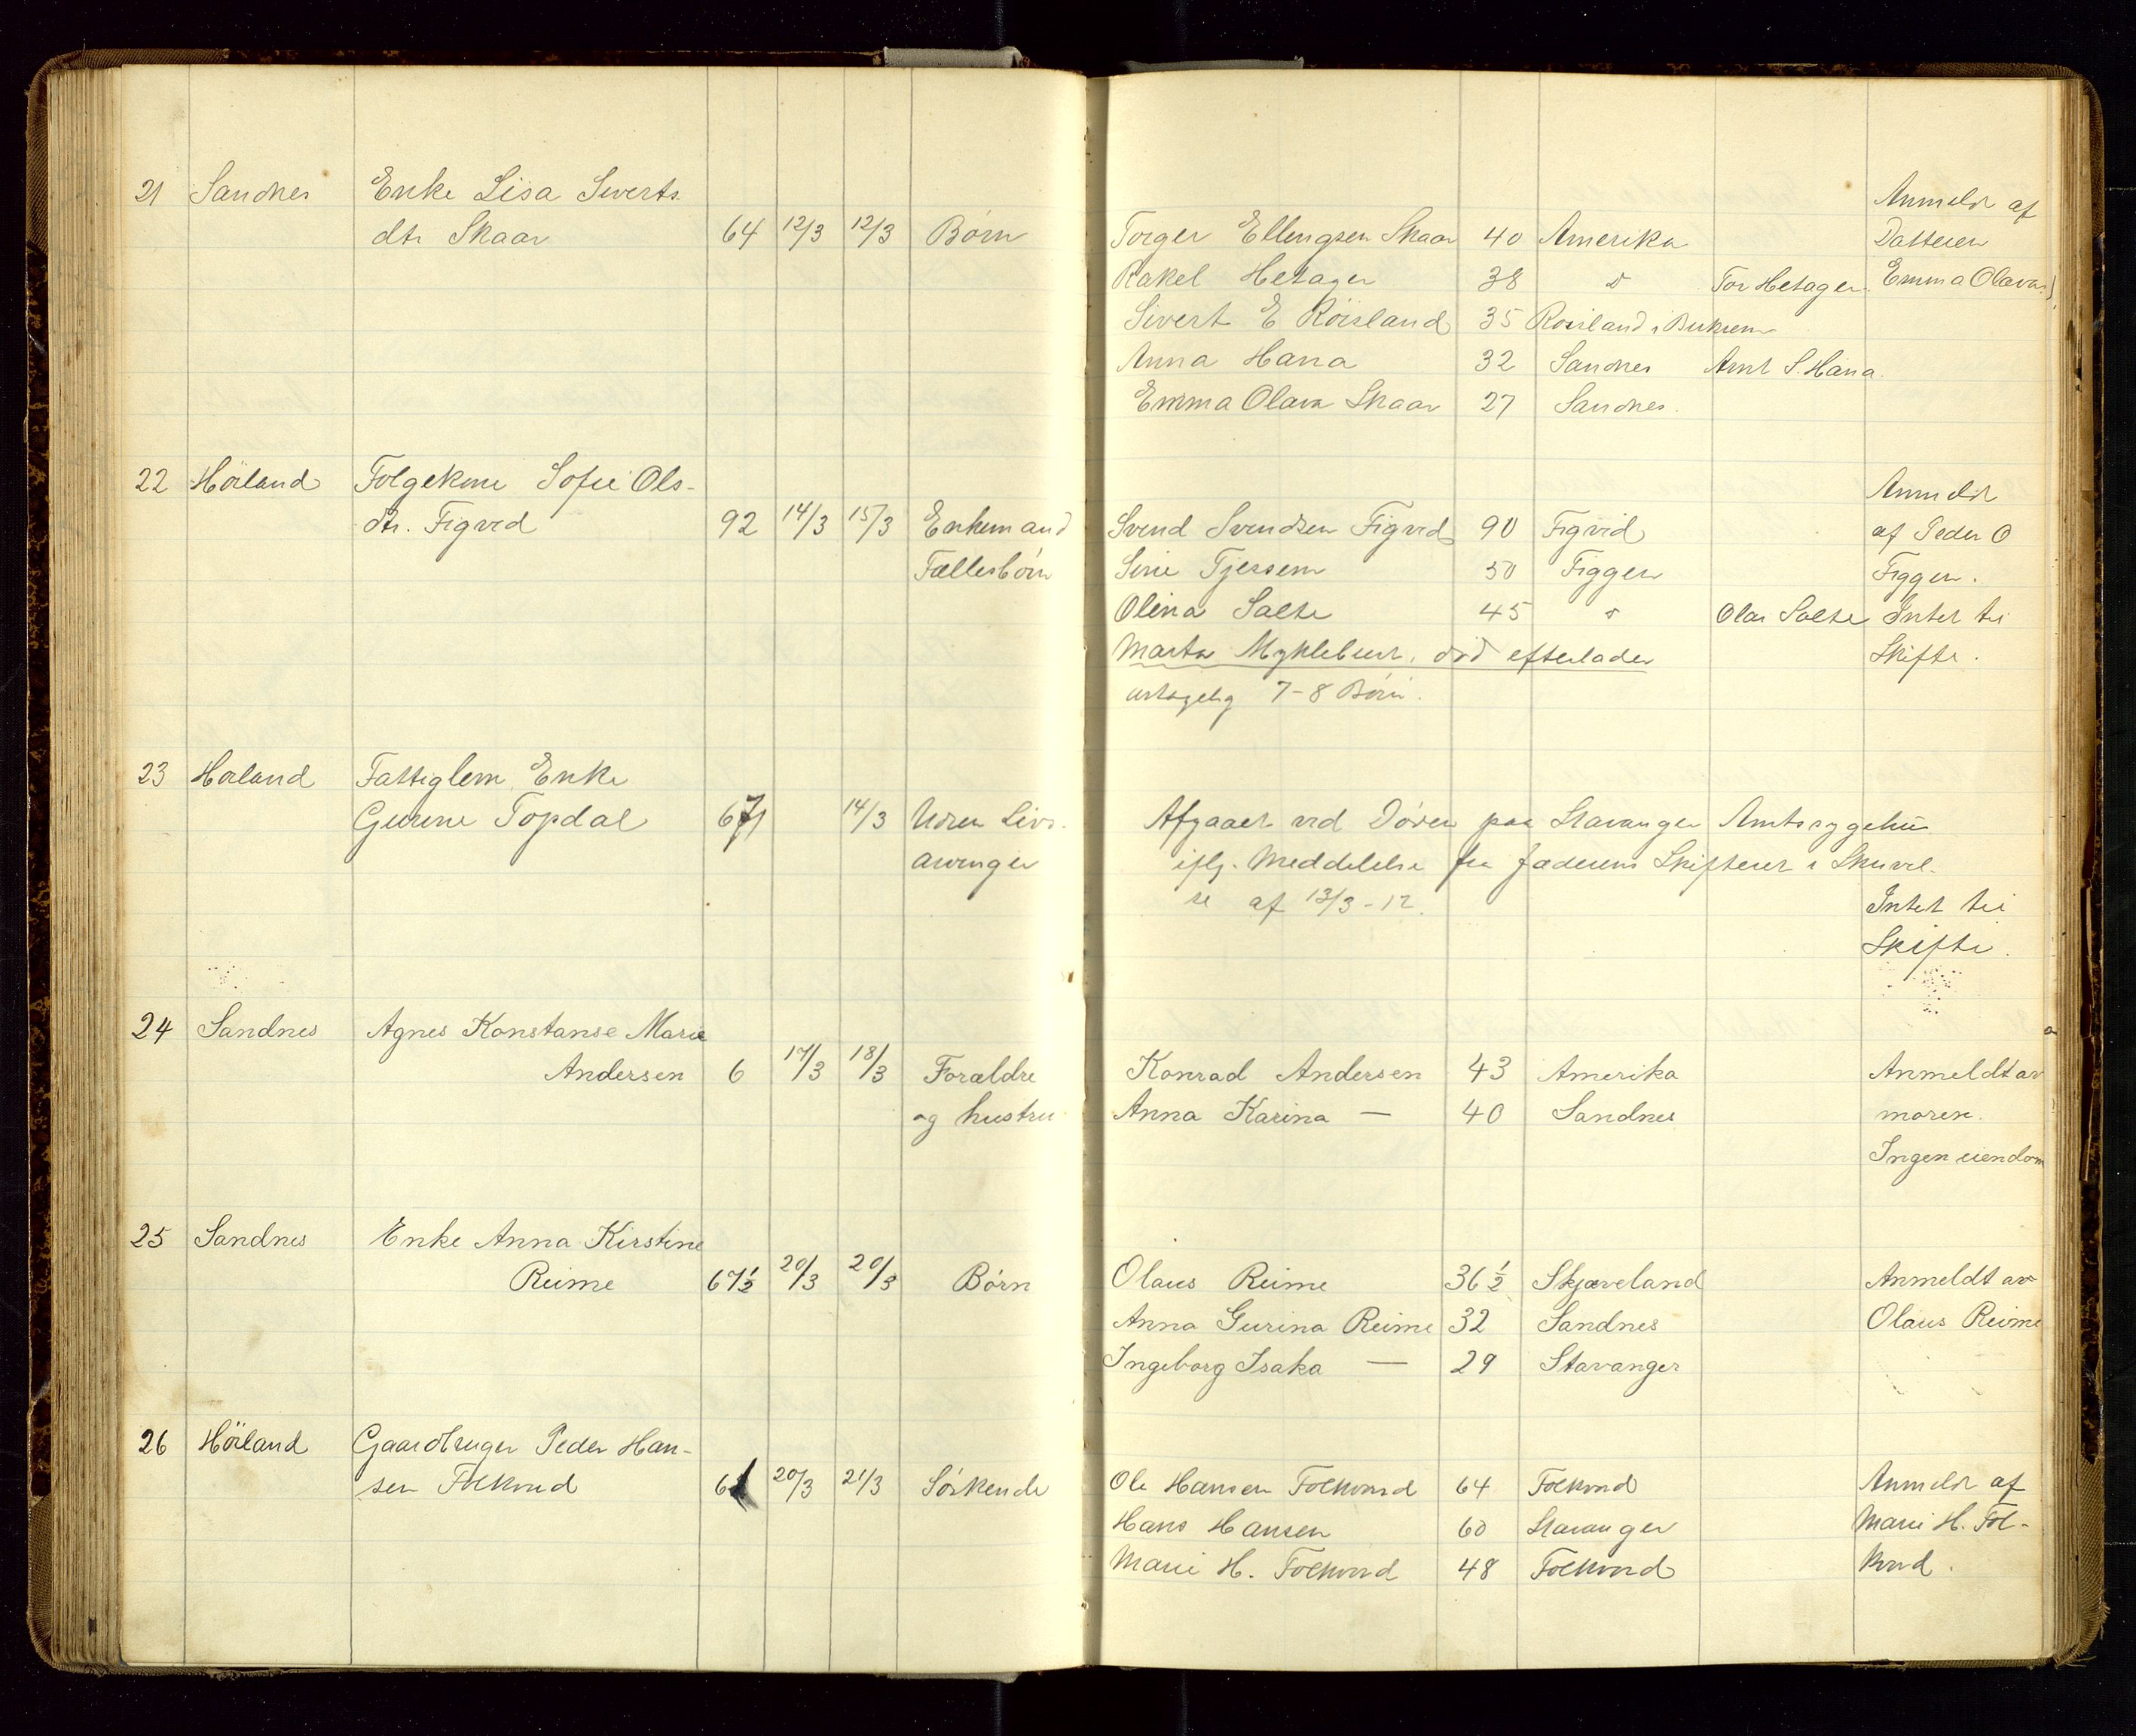 21 Sandnes Enke Lisa Siverts
dtr Skaar 64 12/3 12/3 Børn Torger Ellengsen Skaar 40 Amerika Anmeldt af Datteren
Rakel Hetager 38 d Tor Hetager Emma Olava
Sivert E Röisland 35 Rosiland i
Anna Hana 32 Sandnes Arnt S. Hana
Emma Olava Skaar 27 Sandnes.
22 Höiland Folgekone Sofie Ols-
dtr. Figved 92 14/3 15/3 Enkemand Svend Svendsen Figved 90 Figvid Anmeldt af Peder O
Fællesbørn Sirie Tjessem 50 Figgen Figgen.
Olina Salte 45 d Olai Salte Intet til
Marta Myklebust, død efterlader Skifte.
7-8 Børn.
23 Høiland Fattiglem Enke
Gurine Topdal 67 14/3 Uden Livs- Afgaaet ved Døden paa Stavanger Amtssygehus
arvinger iflg. Meddelelse fra Jæderens Skifteret i Skrivel-
se af 13/3-12.
Intet til
Skifte.
24 Sandnes Agnes Konstanse Marie
Andersen 6 17/3 18/3 Forældre Konrad Andersen 43 Amerika Anmeldt av
og hustru Anna Karina — 40 Sandnes moren.
Ingen eiendom
25 Sandnes Enke Anna Kirstine
Reime 67½ 20/3 20/3 Børn Olaus Reime 36½ Skjæveland Anmeldt av
Anna Gurina Reime 32 Sandnes Olaus Reime
Ingeborg Isaka — 29 Stavanger
26 Höiland Gaardbruger Peder Han-
sen Folkvord 61 20/3 21/3 Søskende Ole Hansen Folkvord 64 Folkvord Anmeldt af
Hans Hansen 60 Stavanger Marie H. Fol-
Marie H. Folkvord 48 Folkvord kvord.